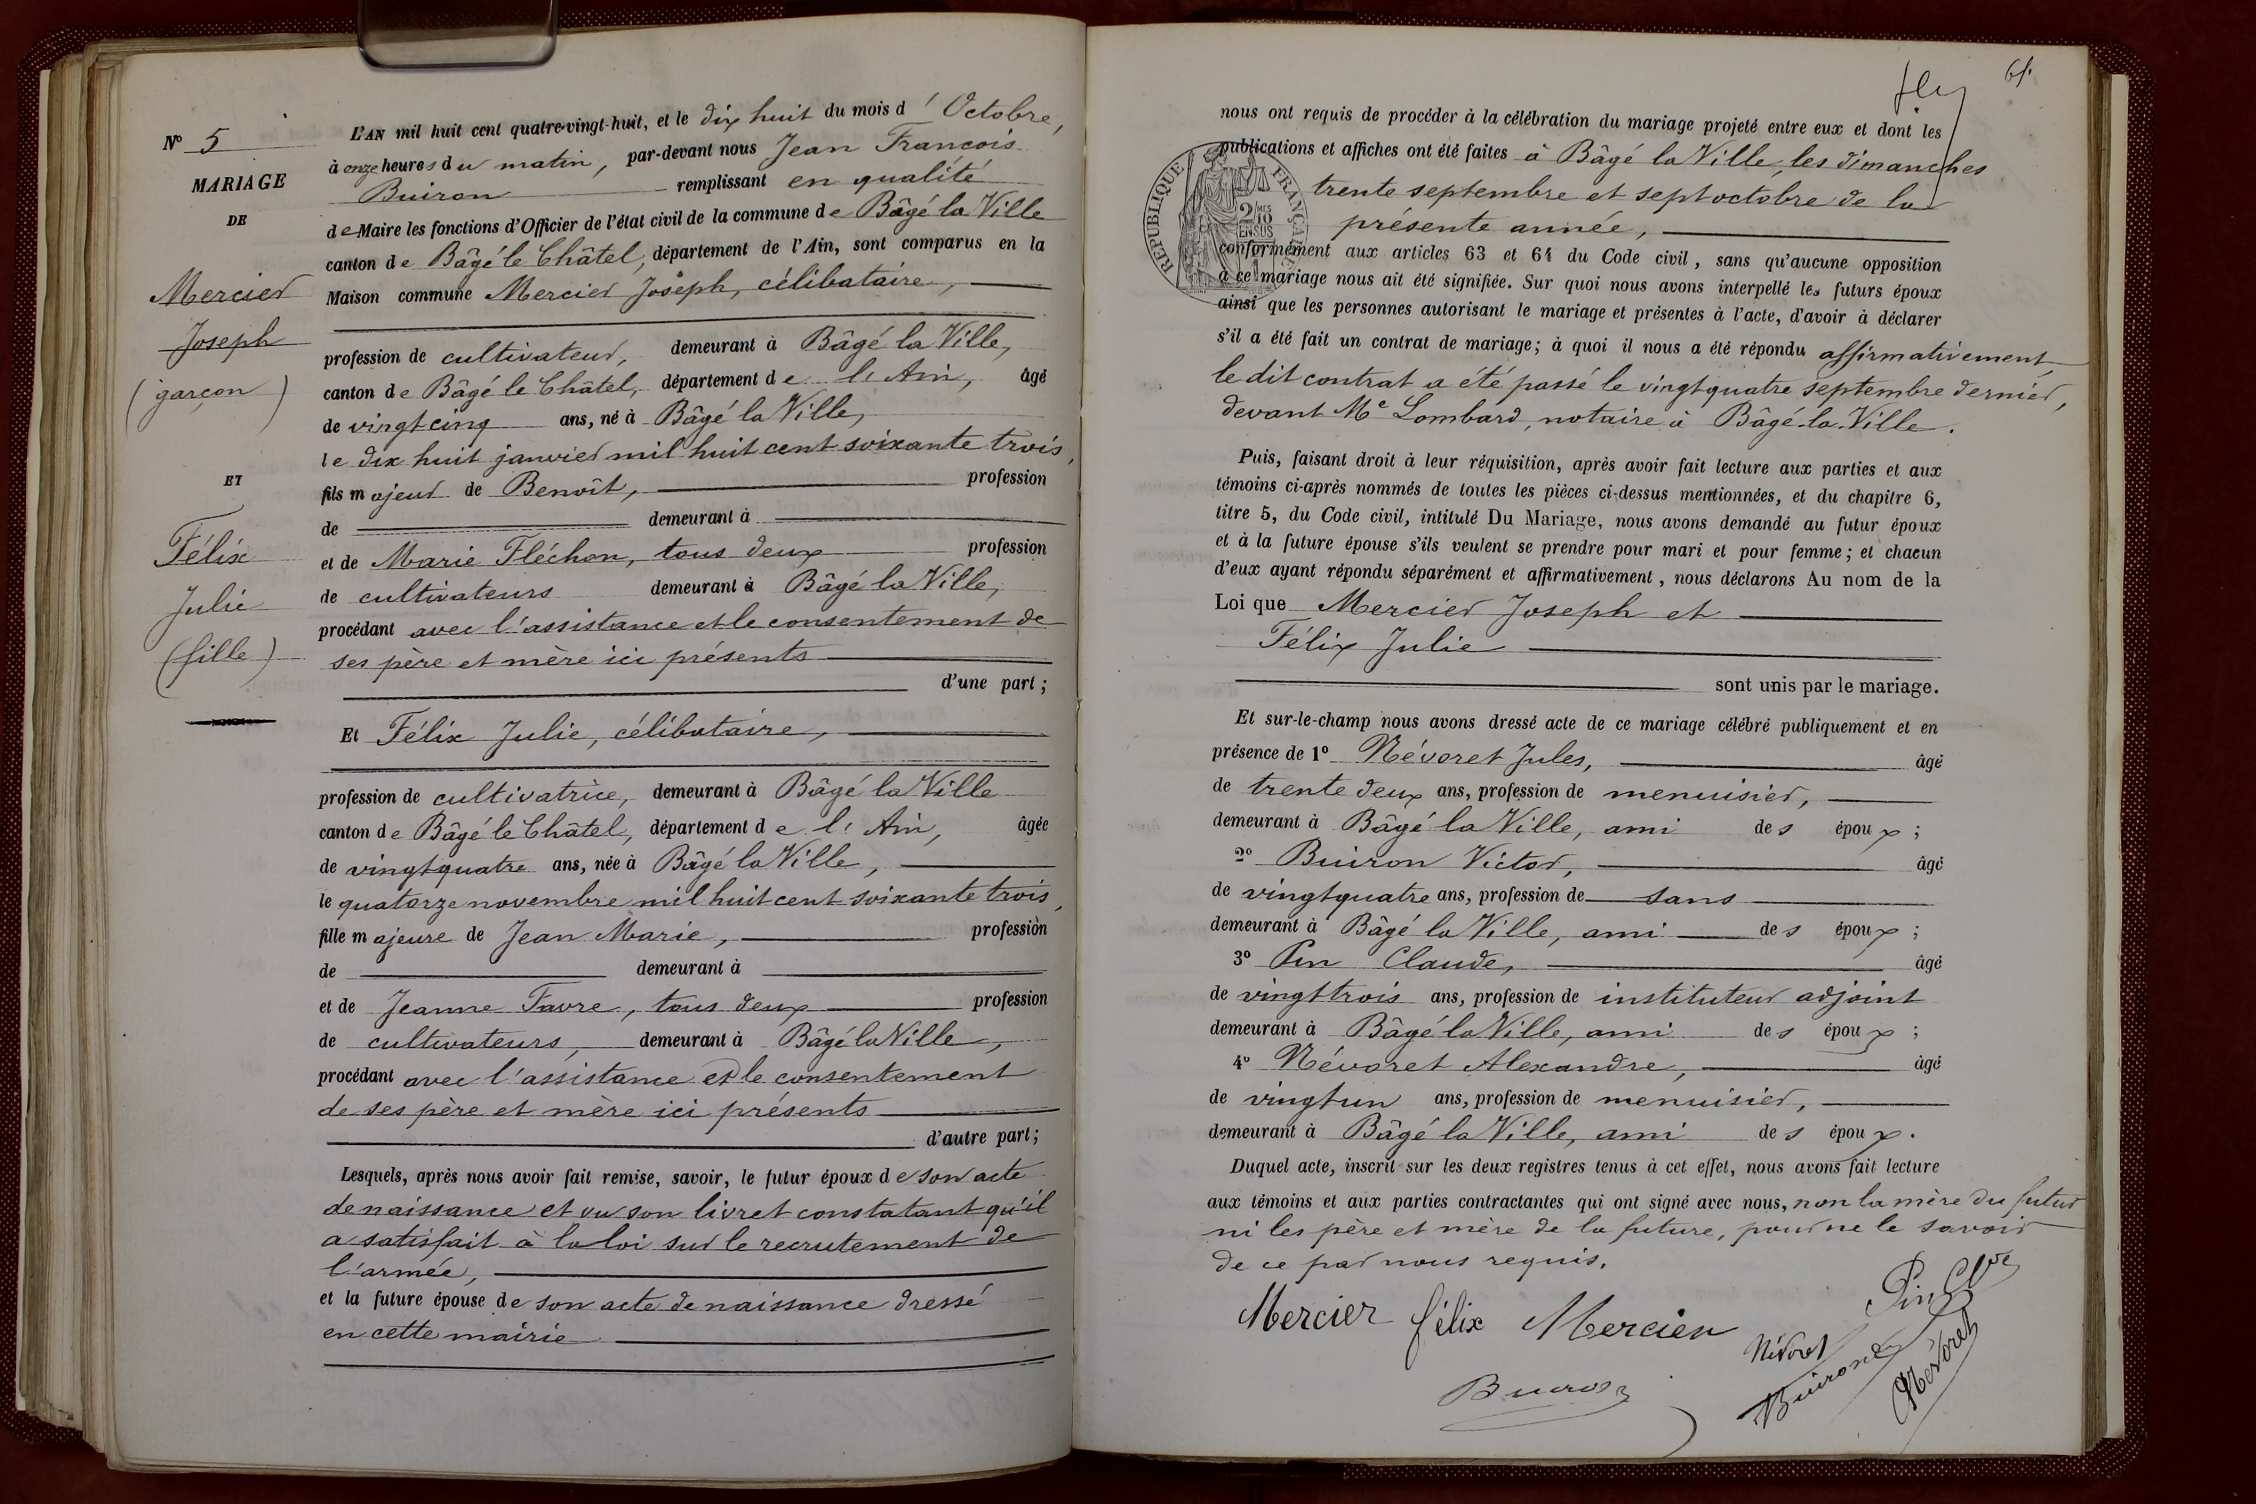 N° 5
MARIAGE
DE
Mercier
Joseph
(garçon)
ET
Félix
Julie
(fille)
L'AN mil huit cent quatre-vingt-huit, et le dix huit du mois d' Octobre,
à onze heures du matin, par-devant nous Jean François
Buiron remplissant en qualité
de Maire les fonctions d'Officier de l'état civil de la commune de Bâgé la Ville
canton de Bâgé le Châtel, département de l'Ain, sont comparus en la
Maison commune Mercier Joseph, célibataire,
profession de cultivateur, demeurant à Bâgé la Ville,
canton de Bâgé le Châtel, département de l'Ain, âgé
de vingt cinq ans, né à Bâgé la Ville,
le dix huit janvier mil huit cent soixante trois,
fils majeur de Benoît, profession
de demeurant à
et de Marie Fléchon, tous deux profession
de cultivateurs demeurant à Bâgé la Ville,
procédant avec l'assistance et le consentement de
ses père et mère ici présents
d'une part;
Et Félix Julie, célibataire,
profession de cultivatrice, demeurant à Bâgé la Ville
canton de Bâgé le Châtel, département de l'Ain, âgée
de vingt quatre ans, née à Bâgé la Ville,
le quatorze novembre mil huit cent soixante trois,
fille majeure de Jean Marie, profession
de demeurant à
et de Jeanne Favre, tous deux profession
de cultivateurs, demeurant à Bâgé la Ville,
procédant avec l'assistance et le consentement
de ses père et mère ici présents
d'autre part;
Lesquels, après nous avoir fait remise, savoir, le futur époux de son acte
de naissance et vu son livret constatant qu'il
a satisfait à la loi sur le recrutement de
l'armée,
et la future épouse de son acte de naissance dressé
en cette mairie
61.
nous ont requis de procéder à la célébration du mariage projeté entre eux et dont les
publications et affiches ont été faites à Bâgé la Ville, les dimanches
trente septembre et sept octobre de la
présente année,
RÉPUBLIQUE FRANÇAISE
2/10 MES
EN SUS
conformément aux articles 63 et 64 du Code civil, sans qu'aucune opposition
à ce mariage nous ait été signifiée. Sur quoi nous avons interpellé les futurs époux
ainsi que les personnes autorisant le mariage et présentes à l'acte, d'avoir à déclarer
s'il a été fait un contrat de mariage; à quoi il nous a été répondu affirmativement
le dit contrat a été passé le vingt quatre septembre dernier,
devant Me Lombard, notaire à Bâgé-la-Ville.
Puis, faisant droit à leur réquisition, après avoir fait lecture aux parties et aux
témoins ci-après nommés de toutes les pièces ci-dessus mentionnées, et du chapitre 6,
titre 5, du Code civil, intitulé Du Mariage, nous avons demandé au futur époux
et à la future épouse s'ils veulent se prendre pour mari et pour femme; et chacun
d'eux ayant répondu séparément et affirmativement, nous déclarons Au nom de la
Loi que Mercier Joseph et
Félix Julie
sont unis par le mariage.
Et sur-le-champ nous avons dressé acte de ce mariage célébré publiquement et en
présence de 1° Névoret Jules, âgé
de trente deux ans, profession de menuisier,
demeurant à Bâgé la Ville, ami des époux;
2° Buiron Victor, âgé
de vingt quatre ans, profession de sans
demeurant à Bâgé la Ville, ami des époux;
3° Pin Claude, âgé
de vingt trois ans, profession de instituteur adjoint
demeurant à Bâgé la Ville, ami des époux;
4° Névoret Alexandre, âgé
de vingt un ans, profession de menuisier,
demeurant à Bâgé la Ville, ami des époux.
Duquel acte, inscrit sur les deux registres tenus à cet effet, nous avons fait lecture
aux témoins et aux parties contractantes qui ont signé avec nous, non la mère du futur
ni les père et mère de la future, pour ne le savoir
de ce par nous requis.
Mercier félix Mercier
Pin Cde
Névoret
Buiron
Névoret
Buiron